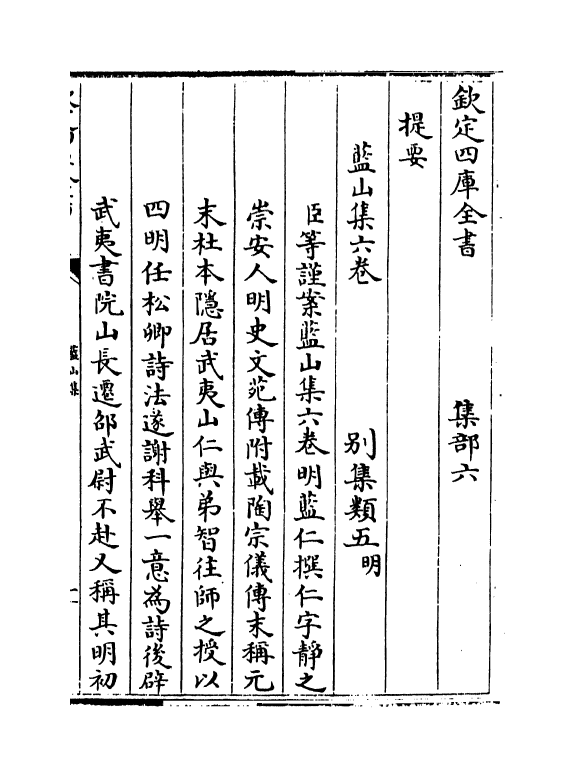 欽定四庫全書　　　　集部六
提要
藍山集六卷　　　　別集類五明
臣等謹案藍山集六卷明藍仁撰仁字靜之
崇安人明史文苑傳附載陶宗儀傳末稱元
末杜本隱居武夷山仁與弟智往師之授以
四明任松卿詩法遂謝科舉一意為詩後辟
武夷書院山長遷邵武尉不赴又稱其明初
藍山集